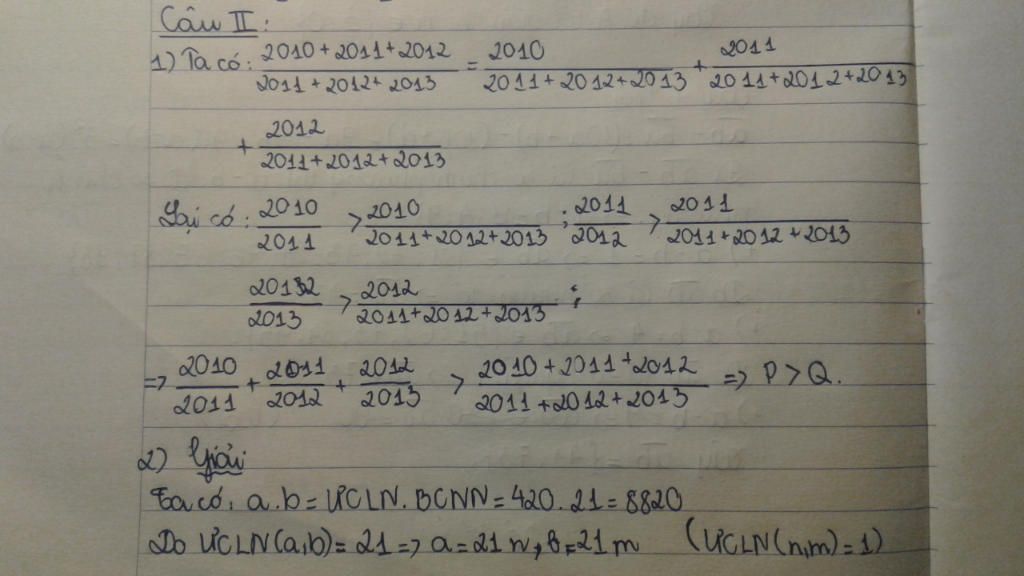 Câu II:
1) Ta có: (2010+2011+2012)/(2011+2012+2013) = 2010/(2011+2012+2013) + 2011/(2011+2012+2013)
+ 2012/(2011+2012+2013)
Lại có: 2010/2011 > 2010/(2011+2012+2013) ; 2011/2012 > 2011/(2011+2012+2013)
2012/2013 > 2012/(2011+2012+2013) ;
=> 2010/2011 + 2011/2012 + 2012/2013 > (2010+2011+2012)/(2011+2012+2013) => P > Q.
2) Giải
Ta có: a.b = ƯCLN.BCNN = 420.21 = 8820
Do ƯCLN(a,b) = 21 => a = 21n, b = 21m (ƯCLN(n,m) = 1)